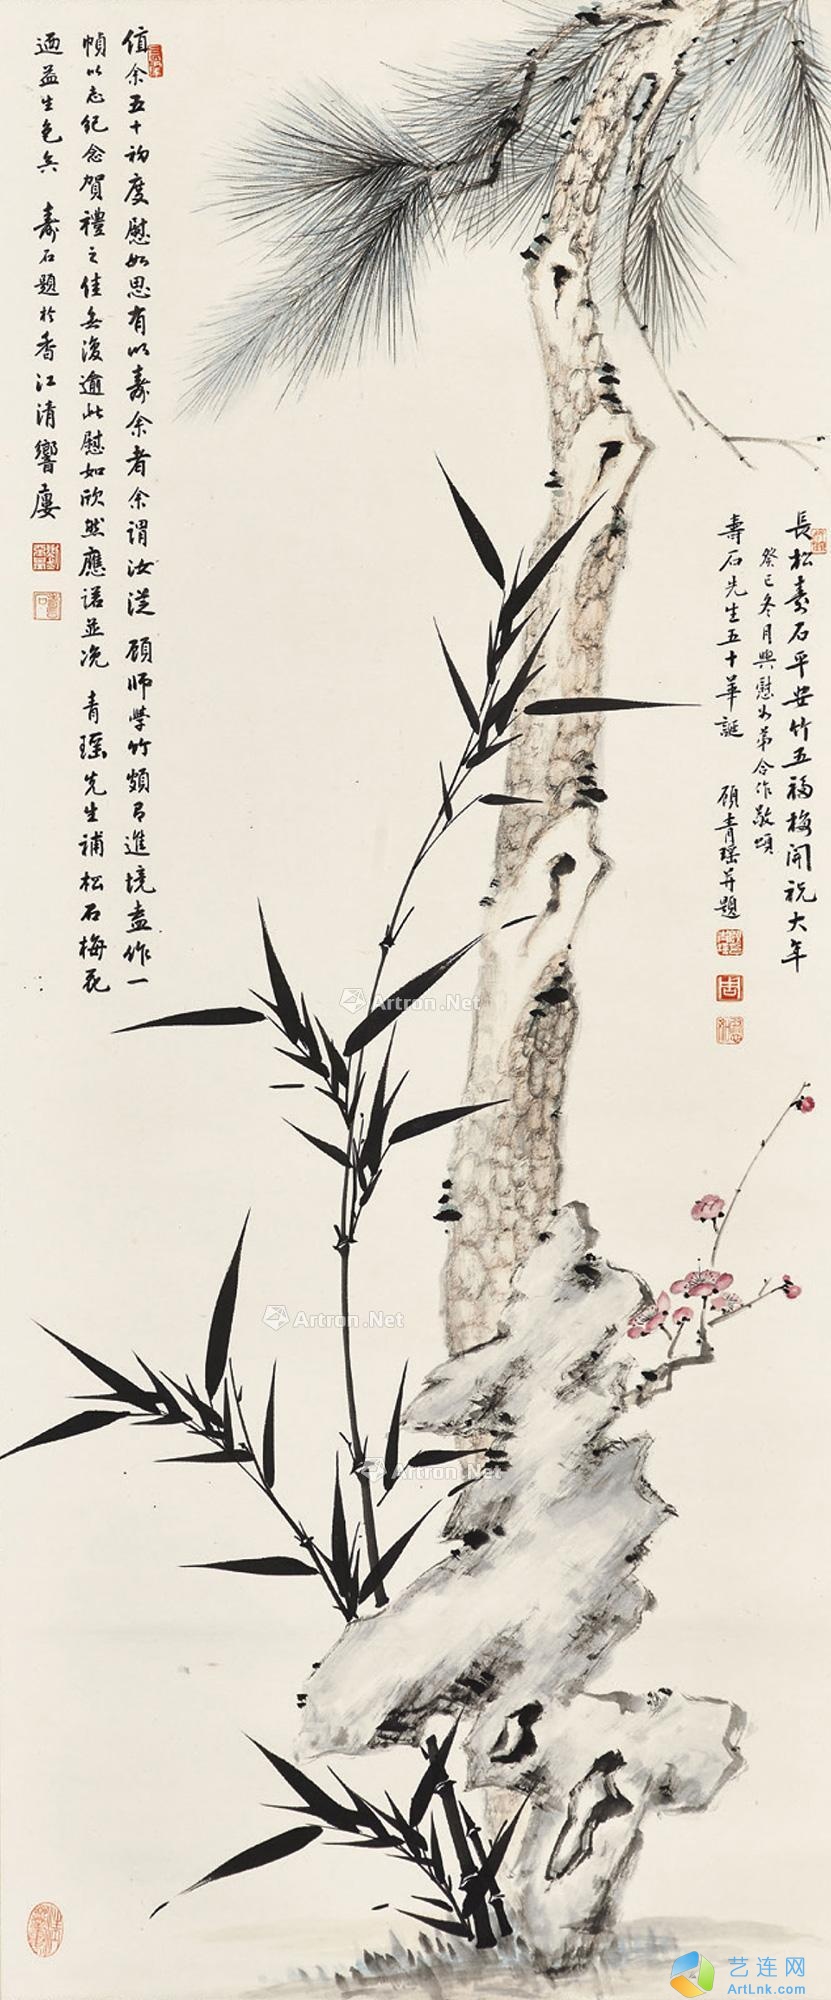 長松壽石平安竹五福梅開祝大年
癸巳冬月與慰如弟合作敬頌
壽石先生五十華誕 顧青瑤并題
值余五十初度慰如思有以壽余者余謂汝從 顧師學竹頗有進境盍作一
幀以志紀念賀禮之佳無復逾此慰如欣然應諾並浼 青瑤先生補松石梅花
迺益生色矣 壽石題於香江清響廔
Artron.Net
Artron.Net
Artron.Net
艺连网
ArtLnk.com